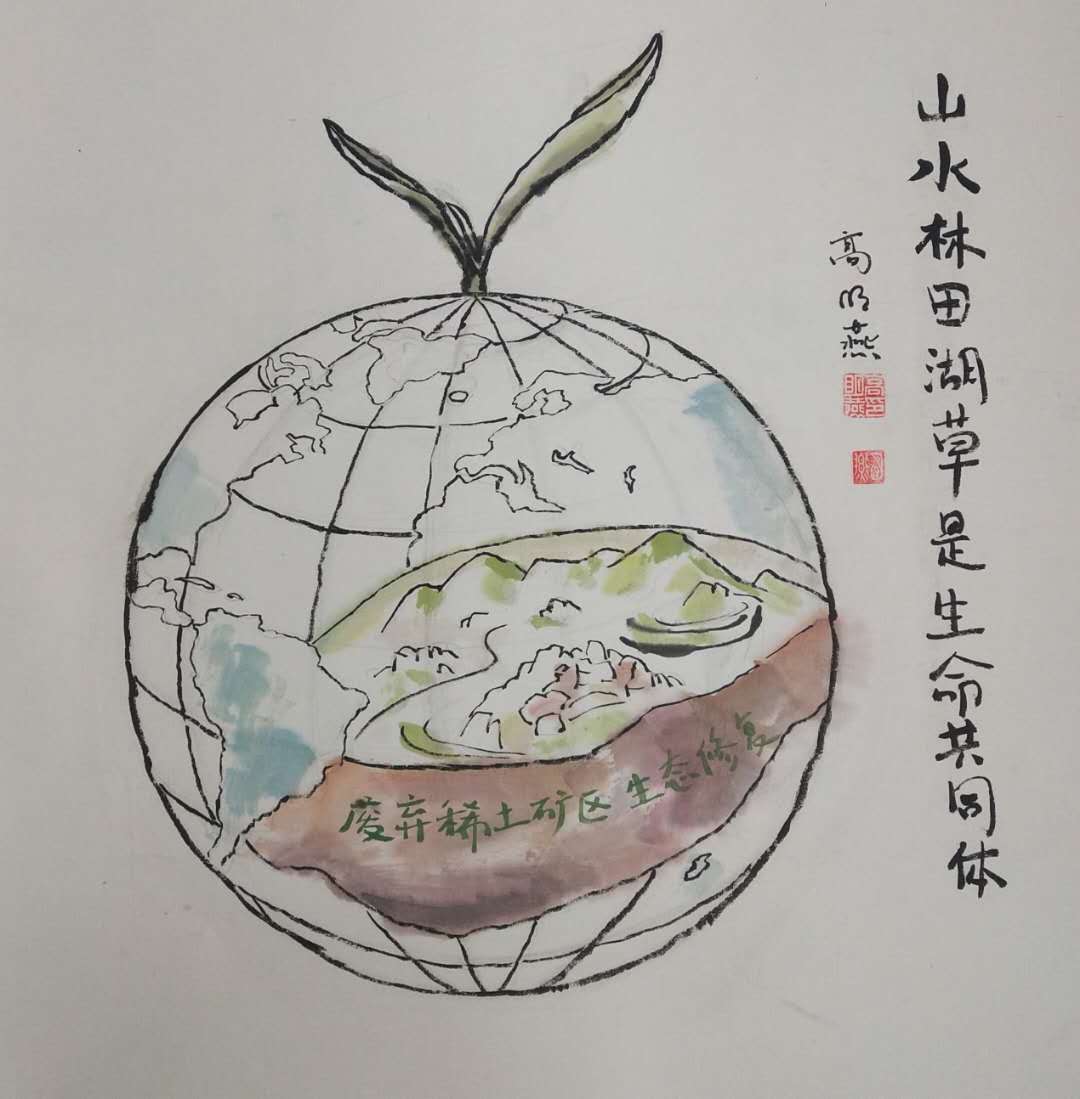 山水林田湖草是生命共同体
高明燕
废弃稀土矿区生态修复